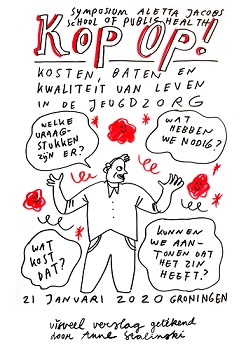 SYMPOSIUM ALETTA JACOBS
SCHOOL OF PUBLIC HEALTH
Kop Op!
KOSTEN, BATEN EN
KWALITEIT VAN LEVEN
IN DE JEUGDZORG
WELKE
VRAAG-
STUKKEN
ZIJN ER?
WAT
HEBBEN
WE NODIG?
WAT
KOST
DAT?
KUNNEN
WE AAN-
TONEN DAT
HET ZIN
HEEFT?
21 JANUARI 2020 GRONINGEN
visueel verslag getekend
door Anne Stalinski